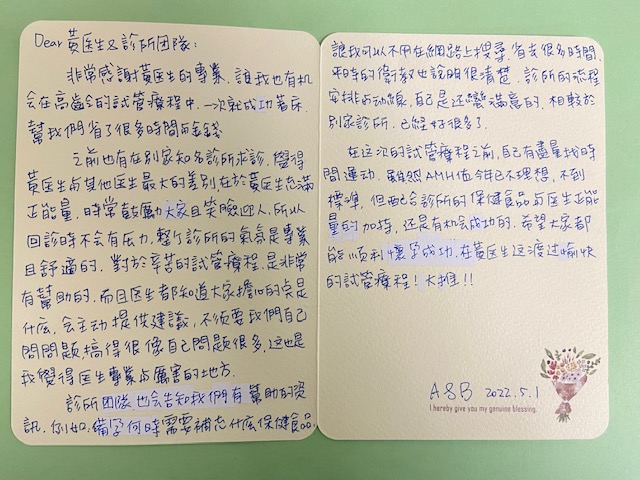 Dear 黃医生&診所団隊:
非常感謝黃医生的專業, 讓我也有机
会在高齡的試管療程中, 一次就成功著床,
幫我們省了很多時間与金錢.
之前也有在別家知名診所求診, 覺得
黃医生与其他医生最大的差別在於黃医生充滿
正能量, 時常鼓厲大家且笑臉迎人, 所以
回診時不会有压力, 整个診所的氣氛是專業
且舒適的. 對於辛苦的試管療程, 是非常
有幫助的. 而且医生都知道大家擔心的点是
什庅, 会主动提供建議, 不須要我們自己
問問題搞得很像自己問題很多, 这也是
我覺得医生專業与厲害的地方.
診所团隊也会告知我們有幫助的資
訊, 例如: 備孕何時需要補充什庅保健食品,
讓我可以不用在網路上搜尋, 省去很多時間,
平時的衛教也說明很清楚, 診所的流程
安排与动線, 自己是还蠻滿意的, 相較於
別家診所, 已經好很多了.
在这次的試管療程之前, 自己有盡量找時
間運动, 雖然AMH值今年已不理想, 不到
標準, 但配合診所的保健食品与医生正能
量的加持, 还是有机会成功的, 希望大家都
能順利懷孕成功, 在黃医生这渡过愉快
的試管療程! 大推!!
A&B 2022.5.1
I hereby give you my genuine blessing.